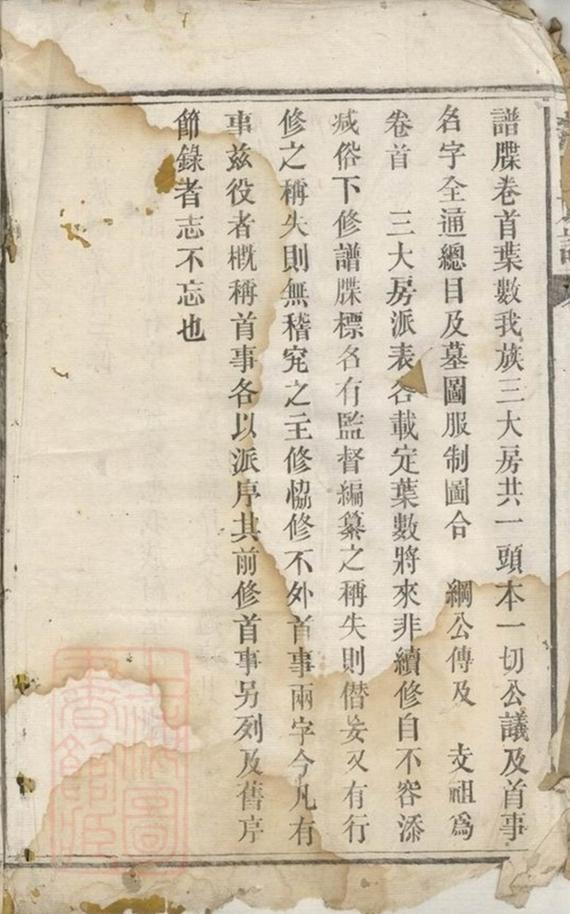 譜牒卷首葉數我族三大房共一頭本一切公議及首事
名字全通總目及墓圖服制圖合　綱公傳及　支祖爲
卷首　三大房派表各載定葉數將來非續修自不容添
減俗下修譜牒標名有監督編纂之稱失則僭妄又有行
修之稱失則無稽究之主修恊修不外首事兩字今凡有
事兹役者概稱首事各以派序其前修首事另列及舊序
節錄者志不忘也